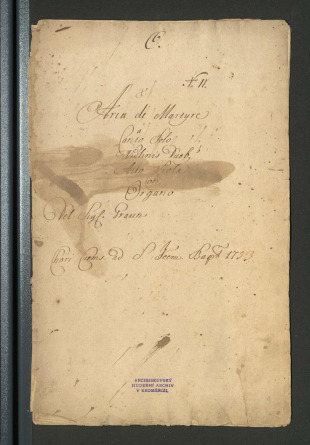 C.
N. 11.
Aria de Martyre
a
Canto Solo
Violinis Duob,
Alto Viola
Organo
Del Sigl. Graun
Chori Crems ad S. Joann Bapt 175
ARCIBISKUPSKÝ
HUDEBNÍ ARCHIV
V KROMĚŘÍŽI.